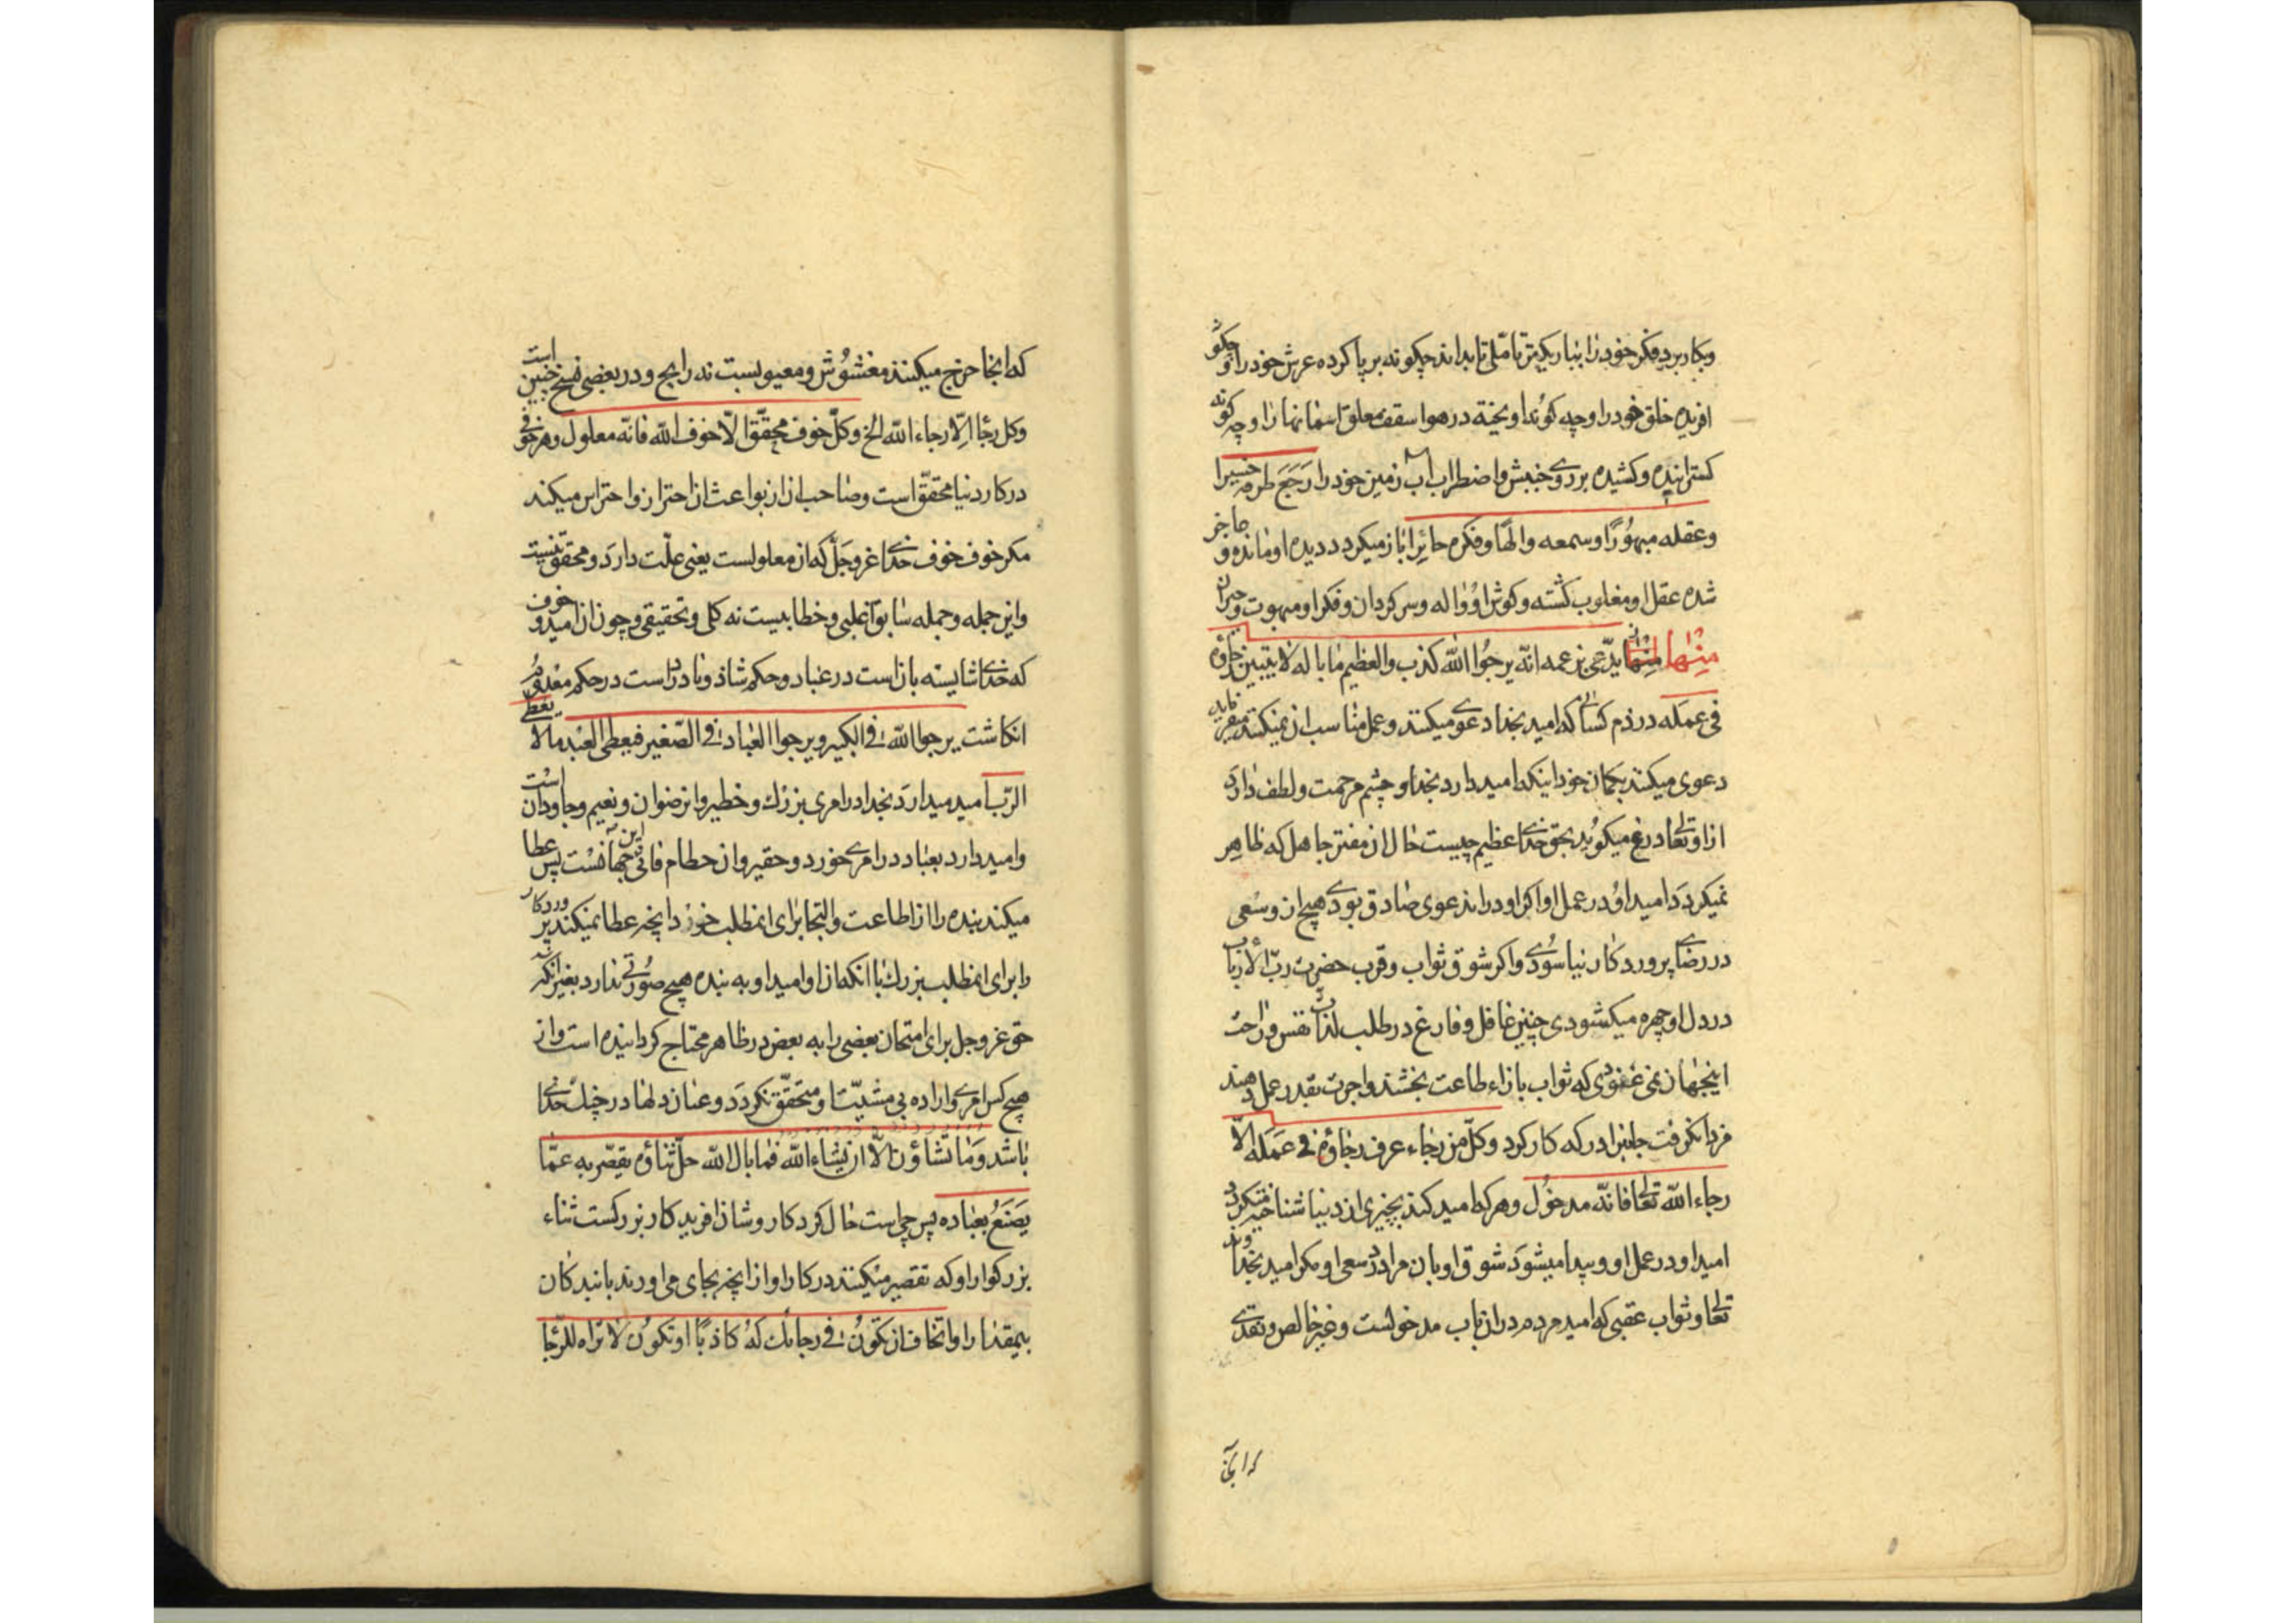 وبکار برد فکر خود را بباریکترین تاملی تا بداند چکونه بر پا کرده عرش خود را و چکونه
افریده خلق خود را و چه کونه اویخته در هوا سقف معلق اسمانها را و چه کونه
کسترانیده و کشیده بر روی جنبش و اضطراب اب زمین خود را رجع طرفه حسیرا
وعقله مبهورا وسمعه والها وفکره حائرا باز میکردد دیده او مانده و عاجز
شده عقل او مغلوب کشته و کوش او واله و سرکردان و فکر او مبهوت و حیران
منها منها یدعی بزعمه انه یرجوا الله کذب والعظیم ما باله لا یتبین رجاؤه
فی عمله در ذم کسانی که امید بخدا دعوی میکنند و عمل مناسب ان نمیکنند میفرماید
دعوی میکند بکمان خود اینکه امید دارد بخدا و چشم مرحمت و لطف دارد
از او تعالی دروغ میکوید بحق خدای عظیم چیست حال ان مفتر جاهل که ظاهر
نمیکردد امید او در عمل او اکر او در این دعوی صادق بودی هیچ ان وسعی
در رضای پروردکار نیاسودی و اکر شوق ثواب و قرب حضرت رب الارباب
در دل او چهره میکشودی چنین غافل و فارغ در طلب لذات نفس و راحت
اینجهان نمی غنودی که ثواب بازاء طاعت بخشند و اجرت بقدر عمل دهند
فردا نکرفت جانبرادر که کار کرد وکل من رجاء عرف رجاؤه فی عمله الا
رجاء الله تعالی فانه مدخول و هر که امید کند بچیزی از دنیا شناخته میکردد
امید او در عمل او و پیدا میشود شوق او بان مراد در سعی او مکر امید بخداوند
تعالی و ثواب عقبی که امید مردم در ان باب مدخولست و غیر خالص و نقدی
که انجا
که انجا خرج میکنند مغشوش و معیوبست نه رایج و در بعضی نسخ چنین است
وکل رجاء الا رجاء الله الخ وکل خوف محقق الا خوف الله فانه معلول و هر خوفی
در کار دنیا محقق است و صاحب ان از بواعث ان احتراز و احتراس میکند
مکر خوف خوف خدای عز وجل که ان معلولست یعنی علت دارد و محقق نیست
و این جمله و جمله سابق اغلبی و خطابیست نه کلی و تحقیقی و چون ان امید و خوف
که خدای شایسته بان است در عباد و حکم شاذ و نادر است در حکم معدوم
انکاشت یرجوا الله فی الکبیر ویرجوا العباد فی الصغیر فیعطی العبد ما لا یعطی
الرب امید میدارد بخدا در امری بزرك و خطیر و ان رضوان و نعیم جاودان است
و امید دارد بعباد در امری خورد و حقیر و ان حطام فانی این جهانست پس عطا
میکند بنده را از اطاعت و التجا برای انمطلب خورد انچه عطا نمیکند پروردکار
را برای انمطلب بزرك با انکه از او امید او به بنده هیچ صورتی ندارد بغیر انکه
حق عز وجل برای امتحان بعضی را به بعض در ظاهر محتاج کردانیده است و از
هیچ کس امری و اراده بی مشیت او متحقق نکردد و عنان دلها در چنك خدای
باشد وما تشاؤن الا ان یشاء الله فما بال الله جل ثناؤه یقصر به عما
یصنع بعباده پس چی است حال کردکار و شان افریدکار بزرکست ثناء
بزرکوار او که تقصیر میکنند در کار او از انچه بجای می اورند با بندکان
بیمقدار او اتخاف ان تکون فی رجائك له کاذبا او تکون لا تراه للرجا